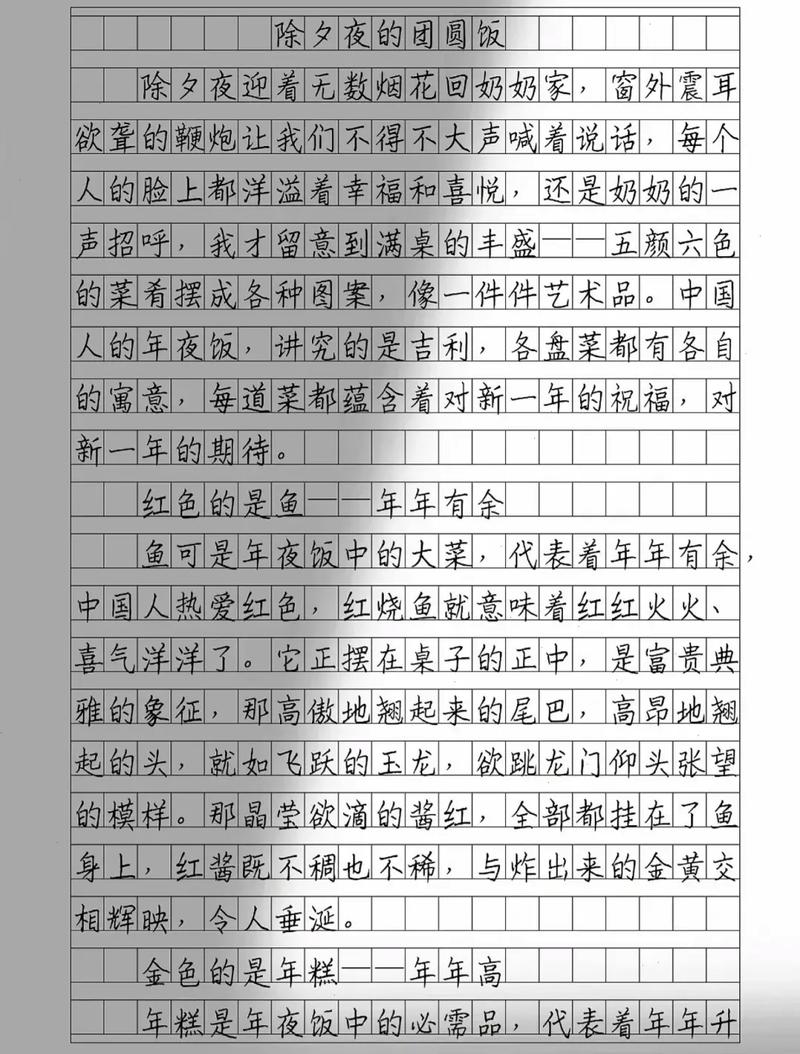 除夕夜的团圆饭
除夕夜迎着无数烟花回奶奶家，窗外震耳
欲聋的鞭炮让我们不得不大声喊着说话，每个
人的脸上都洋溢着幸福和喜悦，还是奶奶的一
声招呼，我才留意到满桌的丰盛——五颜六色
的菜肴摆成各种图案，像一件件艺术品。中国
人的年夜饭，讲究的是吉利，各盘菜都有各自
的寓意，每道菜都蕴含着对新一年的祝福，对
新一年的期待。
红色的是鱼——年年有余
鱼可是年夜饭中的大菜，代表着年年有余，
中国人热爱红色，红烧鱼就意味着红红火火、
喜气洋洋了。它正摆在桌子的正中，是富贵典
雅的象征，那高傲地翘起来的尾巴，高昂地翘
起的头，就如飞跃的玉龙，欲跳龙门仰头张望
的模样。那晶莹欲滴的酱红，全部都挂在了鱼
身上，红酱既不稠也不稀，与炸出来的金黄交
相辉映，令人垂涎。
金色的是年糕——年年高
年糕是年夜饭中的必需品，代表着年年升